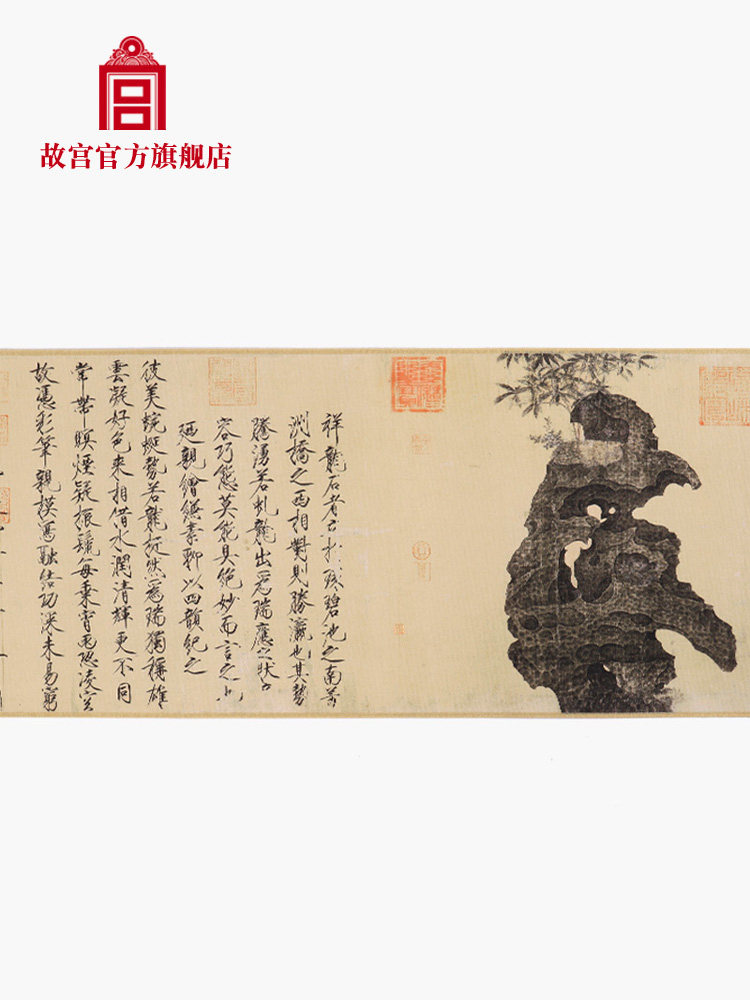 故宫官方旗舰店
祥龍石者立於環碧池之南芳
洲橋之西相對則勝瀛也其勢
騰湧若虬龍出為瑞應之狀奇
容巧態莫能具絕妙而言之也
廼親繪縑素聊以四韻紀之
彼美蜿蜒勢若龍挺然為瑞獨稱雄
雲凝好色來相借水潤清輝更不同
常帶暝煙疑振鬣每乘宵雨恐凌空
故憑彩筆親模寫融結功深未易窮